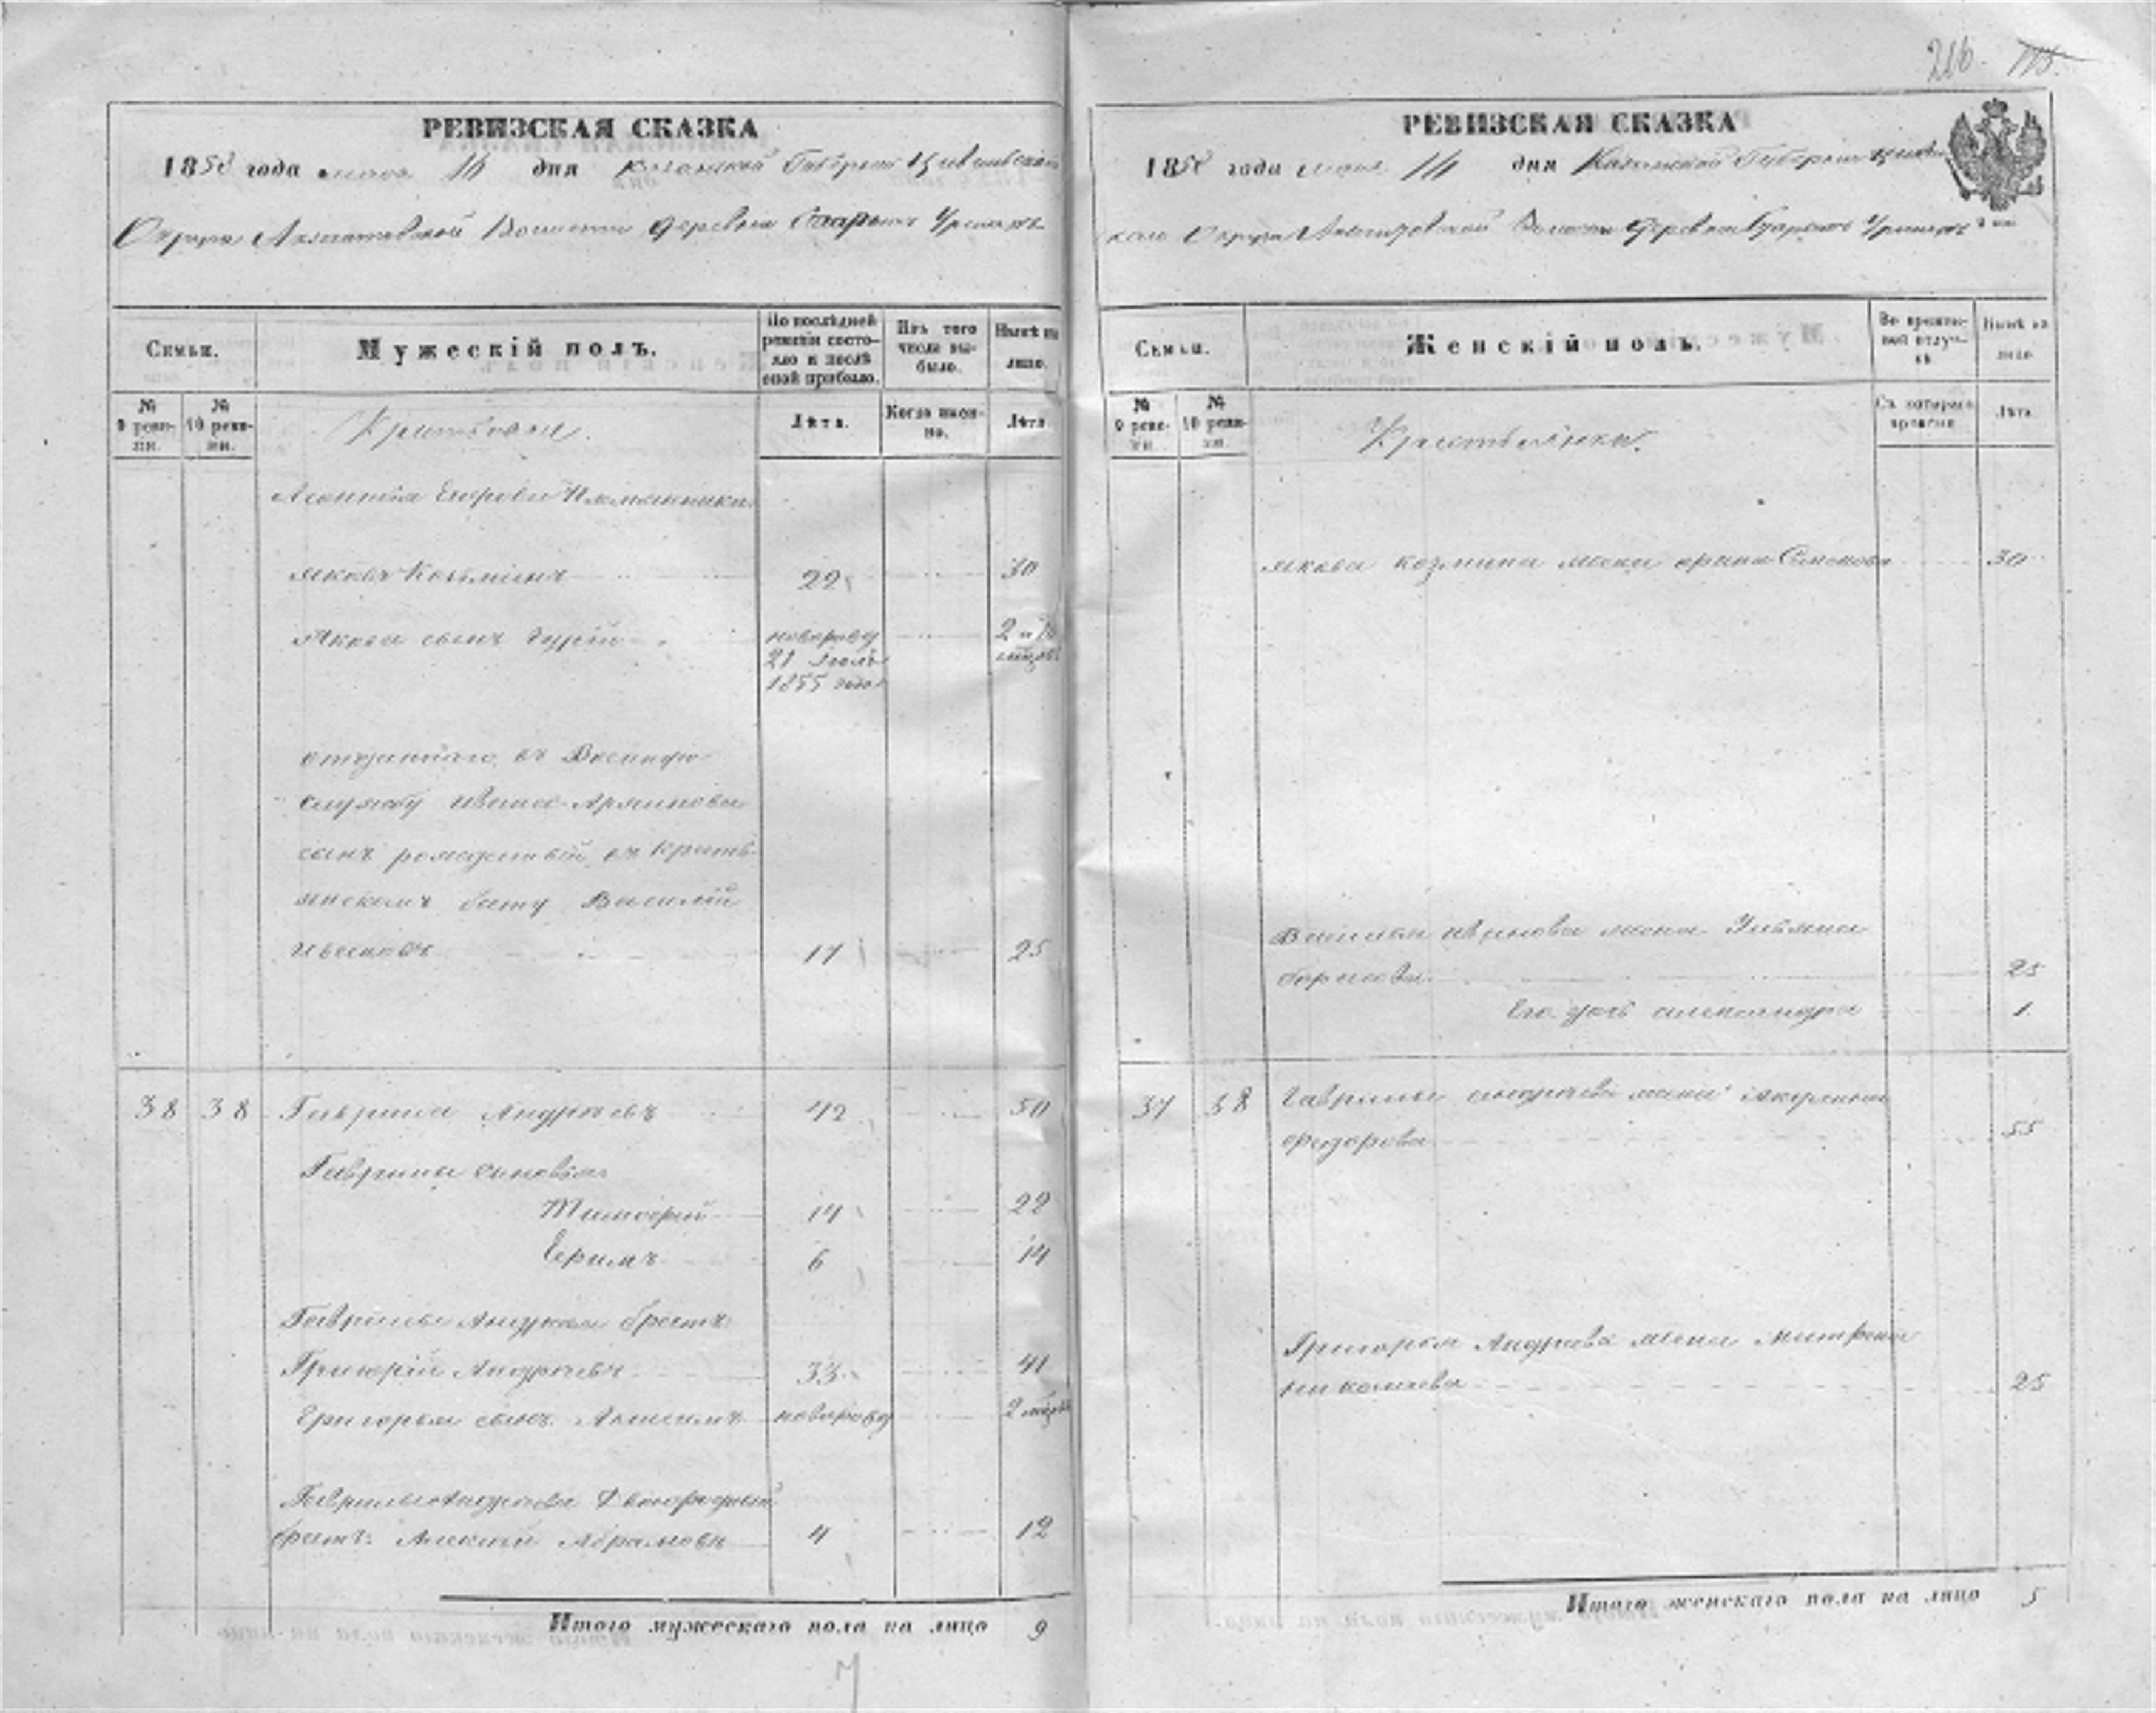 216.
РЕВИЗСКАЯ СКАЗКА
1858 года мая 16 дня Казанской Губернiи Цивильскаго
Округа Волости деревни Старыхъ
Семьи.
Мужескiй полъ.
По послѣдней ревизiи состояло и послѣ оной прибыло.
Изъ того числа выбыло.
Нынѣ на лицо.
№ 9 ревизiи.
№ 10 ревизiи.
Крестьяне.
Лѣта.
Когда именно.
Лѣта
Леонтья Егорова Племянники
Яковъ Козьминъ 22 30
Якова сынъ Гурiй новорожд 2 и 10
21 Iюль мѣсяц
1855 года
отданнаго въ Военную
службу Ивана
сынъ въ Кресть-
янскомъ быту Василiй
Ивановъ 17 25
38 38 Гаврила Андреевъ 42 50
Гаврилы сыновья
Тимофей 14 22
Ефимъ 6 14
Гаврилы Андреева братъ
Григорiй Андреевъ 33 41
Григорья сынъ новорожд 2 мѣсяц
Гаврилы Андреева Двоюродный
братъ Алексей Абрамовъ 4 12
Итого мужескаго пола на лицо 9
РЕВИЗСКАЯ СКАЗКА
1858 года мая 16 дня Казанской Губернiи Цивиль
скаго Округа Волости деревни Старыхъ
Семьи.
Женскiй полъ.
Во временной отлучкѣ
Нынѣ на лицо
№ 9 ревизiи.
№ 10 ревизiи.
Крестьянки.
Съ котораго времени.
Лѣта.
Якова Козмина жена Арина Семенова 30
Василья Иванова жена Ульяна
Борисова 25
Его дочь Александра 1
37 38 Гаврилы Андреева жена Акулина
Федорова 55
Григорья Андреева жена Матрена
Николаева 25
Итого женскаго пола на лицо 5